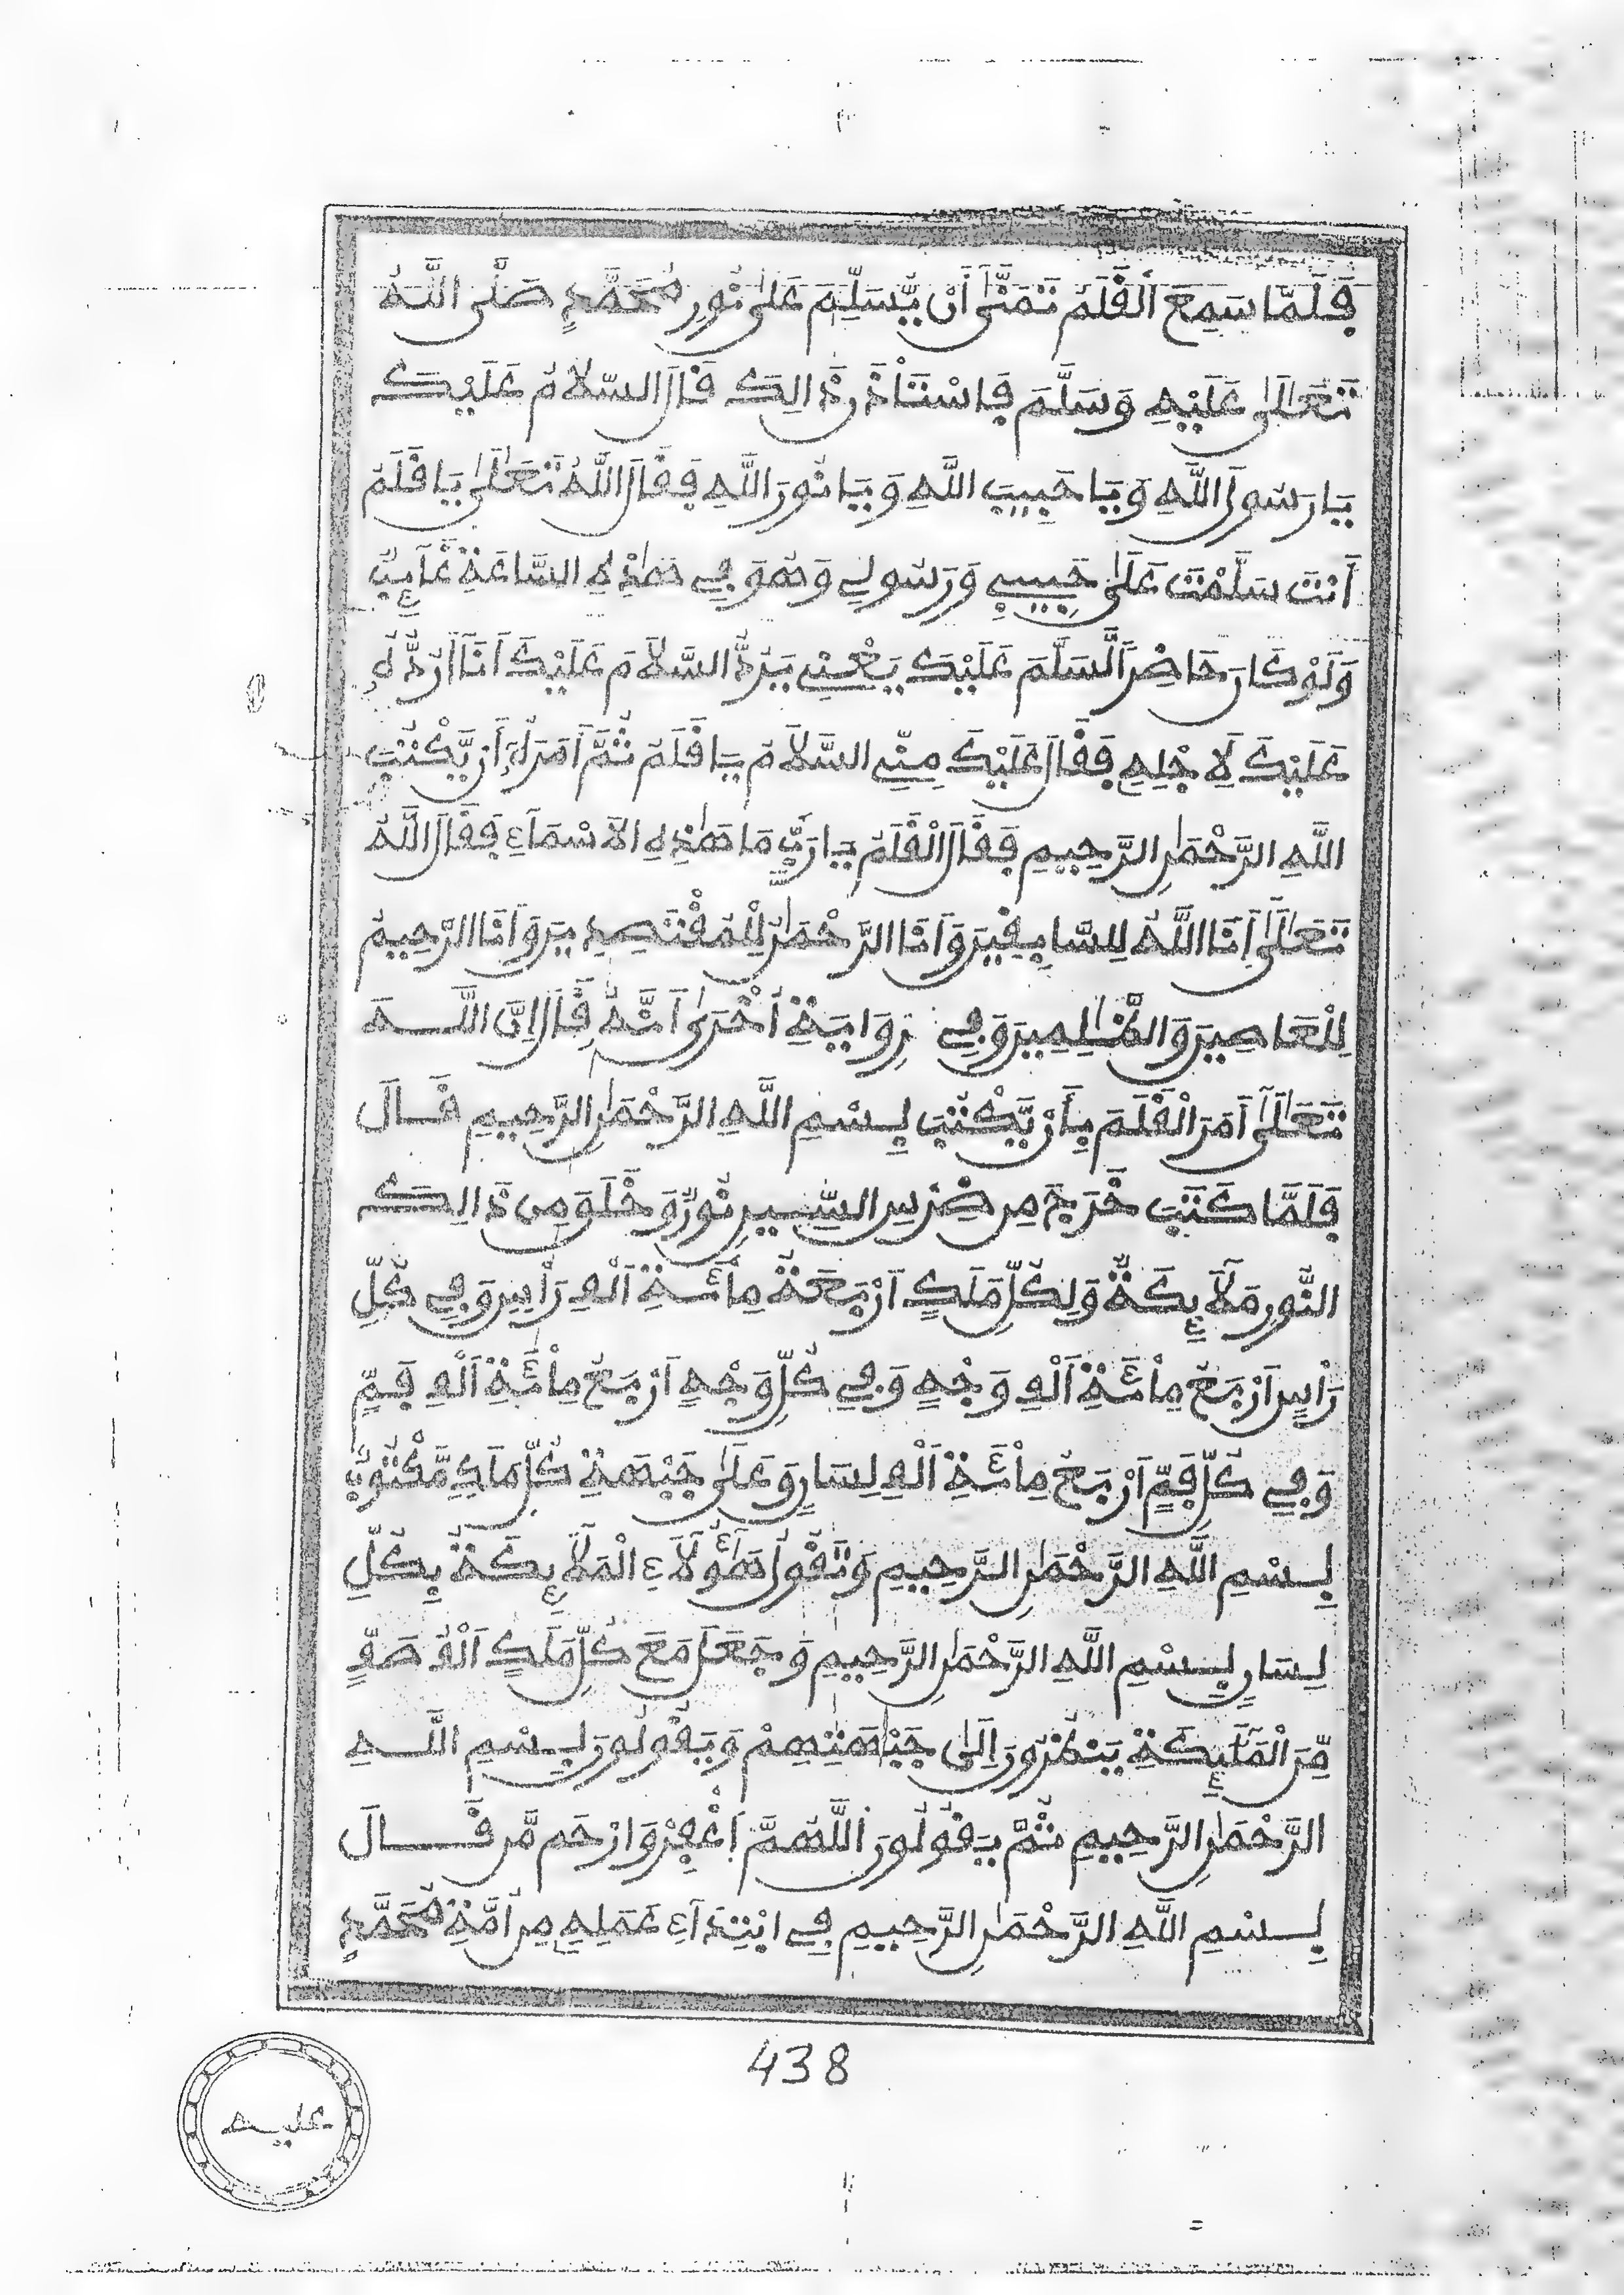 فَلَمَّا سَمِعَ الْقَلَمُ تَمَنَّىٰ أَنْ يُّسَلِّمَ عَلَىٰ نُورِ مُحَمَّدٍ صَلَّى اللَّهُ
تَعَالَىٰ عَلَيْهِ وَسَلَّمَ فَاسْتَأْذَنَ ذَالِكَ قَالَ السَّلَامُ عَلَيْكَ
يَا رَسُولَ اللَّهِ وَيَا حَبِيبَ اللَّهِ وَيَا نُورَ اللَّهِ فَقَالَ اللَّهُ تَعَالَىٰ يَا قَلَمُ
أَنْتَ سَلَّمْتَ عَلَىٰ حَبِيبِي وَرَسُولِي وَهُوَ فِي هَٰذِهِ السَّاعَةِ غَآئِبٌ
وَلَوْ كَانَ حَاضِرًا لَّسَلَّمَ عَلَيْكَ يَعْنِي يَرُدُّ السَّلَامَ عَلَيْكَ أَنَا أَرُدُّهُ
عَلَيْكَ لِاَجْلِهِ فَقَالَ عَلَيْكَ مِنِّي السَّلَامُ يَا قَلَمُ ثُمَّ أَمَرَهُ أَن يَّكْتُبَ
اللَّهِ الرَّحْمَٰنِ الرَّحِيمِ فَقَالَ الْقَلَمُ يَا رَبِّ مَا هَٰذِهِ الْاَسْمَآءِ فَقَالَ اللَّهُ
تَعَالَىٰ أَنَا اللَّهُ لِلسَّابِقِينَ وَأَنَا الرَّحْمَٰنُ لِلْمُقْتَصِدِينَ وَأَنَا الرَّحِيمُ
لِلْعَاصِينَ وَالظَّٰلِمِينَ وَفِي رِوَايَةٍ أُخْرَىٰ أَنَّهُ قَالَ إِنَّ اللَّهَ
تَعَالَىٰ أَمَرَ الْقَلَمَ بِأَنْ يَّكْتُبَ بِسْمِ اللَّهِ الرَّحْمَٰنِ الرَّحِيمِ قَالَ
فَلَمَّا كَتَبَ خَرَجَ مِن ضِرْسِ السِّينِ نُورٌ وَخَلَقَ مِنْ ذَالِكَ
النُّورِ مَلَآئِكَةً وَلِكُلِّ مَلَكٍ أَرْبَعَةُ مِاْئَةِ أَلْفِ رَأْسٍ وَفِي كُلِّ
رَأْسٍ أَرْبَعُ مِاْئَةِ أَلْفِ وَجْهٍ وَفِي كُلِّ وَجْهٍ أَرْبَعُ مِاْئَةِ أَلْفِ فَمٍّ
وَفِي كُلِّ فَمٍّ أَرْبَعُ مِاْئَةِ أَلْفِ لِسَانٍ وَعَلَىٰ جَبْهَةِ كُلِّ مَلَكٍ مَّكْتُوبٌ
بِسْمِ اللَّهِ الرَّحْمَٰنِ الرَّحِيمِ وَتَقُولُ هَٰؤُلَآءِ الْمَلَآئِكَةُ بِكُلِّ
لِسَانٍ بِسْمِ اللَّهِ الرَّحْمَٰنِ الرَّحِيمِ وَجَعَلَ مَعَ كُلِّ مَلَكٍ أَلْفَ صَفٍّ
مِّنَ الْمَلَآئِكَةِ يَنْظُرُونَ إِلَىٰ جَبْهَتِهِمْ وَيَقُولُونَ بِسْمِ اللَّهِ
الرَّحْمَٰنِ الرَّحِيمِ ثُمَّ يَقُولُونَ اللَّهُمَّ اغْفِرْ وَارْحَم مَّن قَالَ
بِسْمِ اللَّهِ الرَّحْمَٰنِ الرَّحِيمِ فِي ابْتِدَآءِ عَمَلِهِ مِنْ أُمَّةِ مُحَمَّدٍ
438
عليه